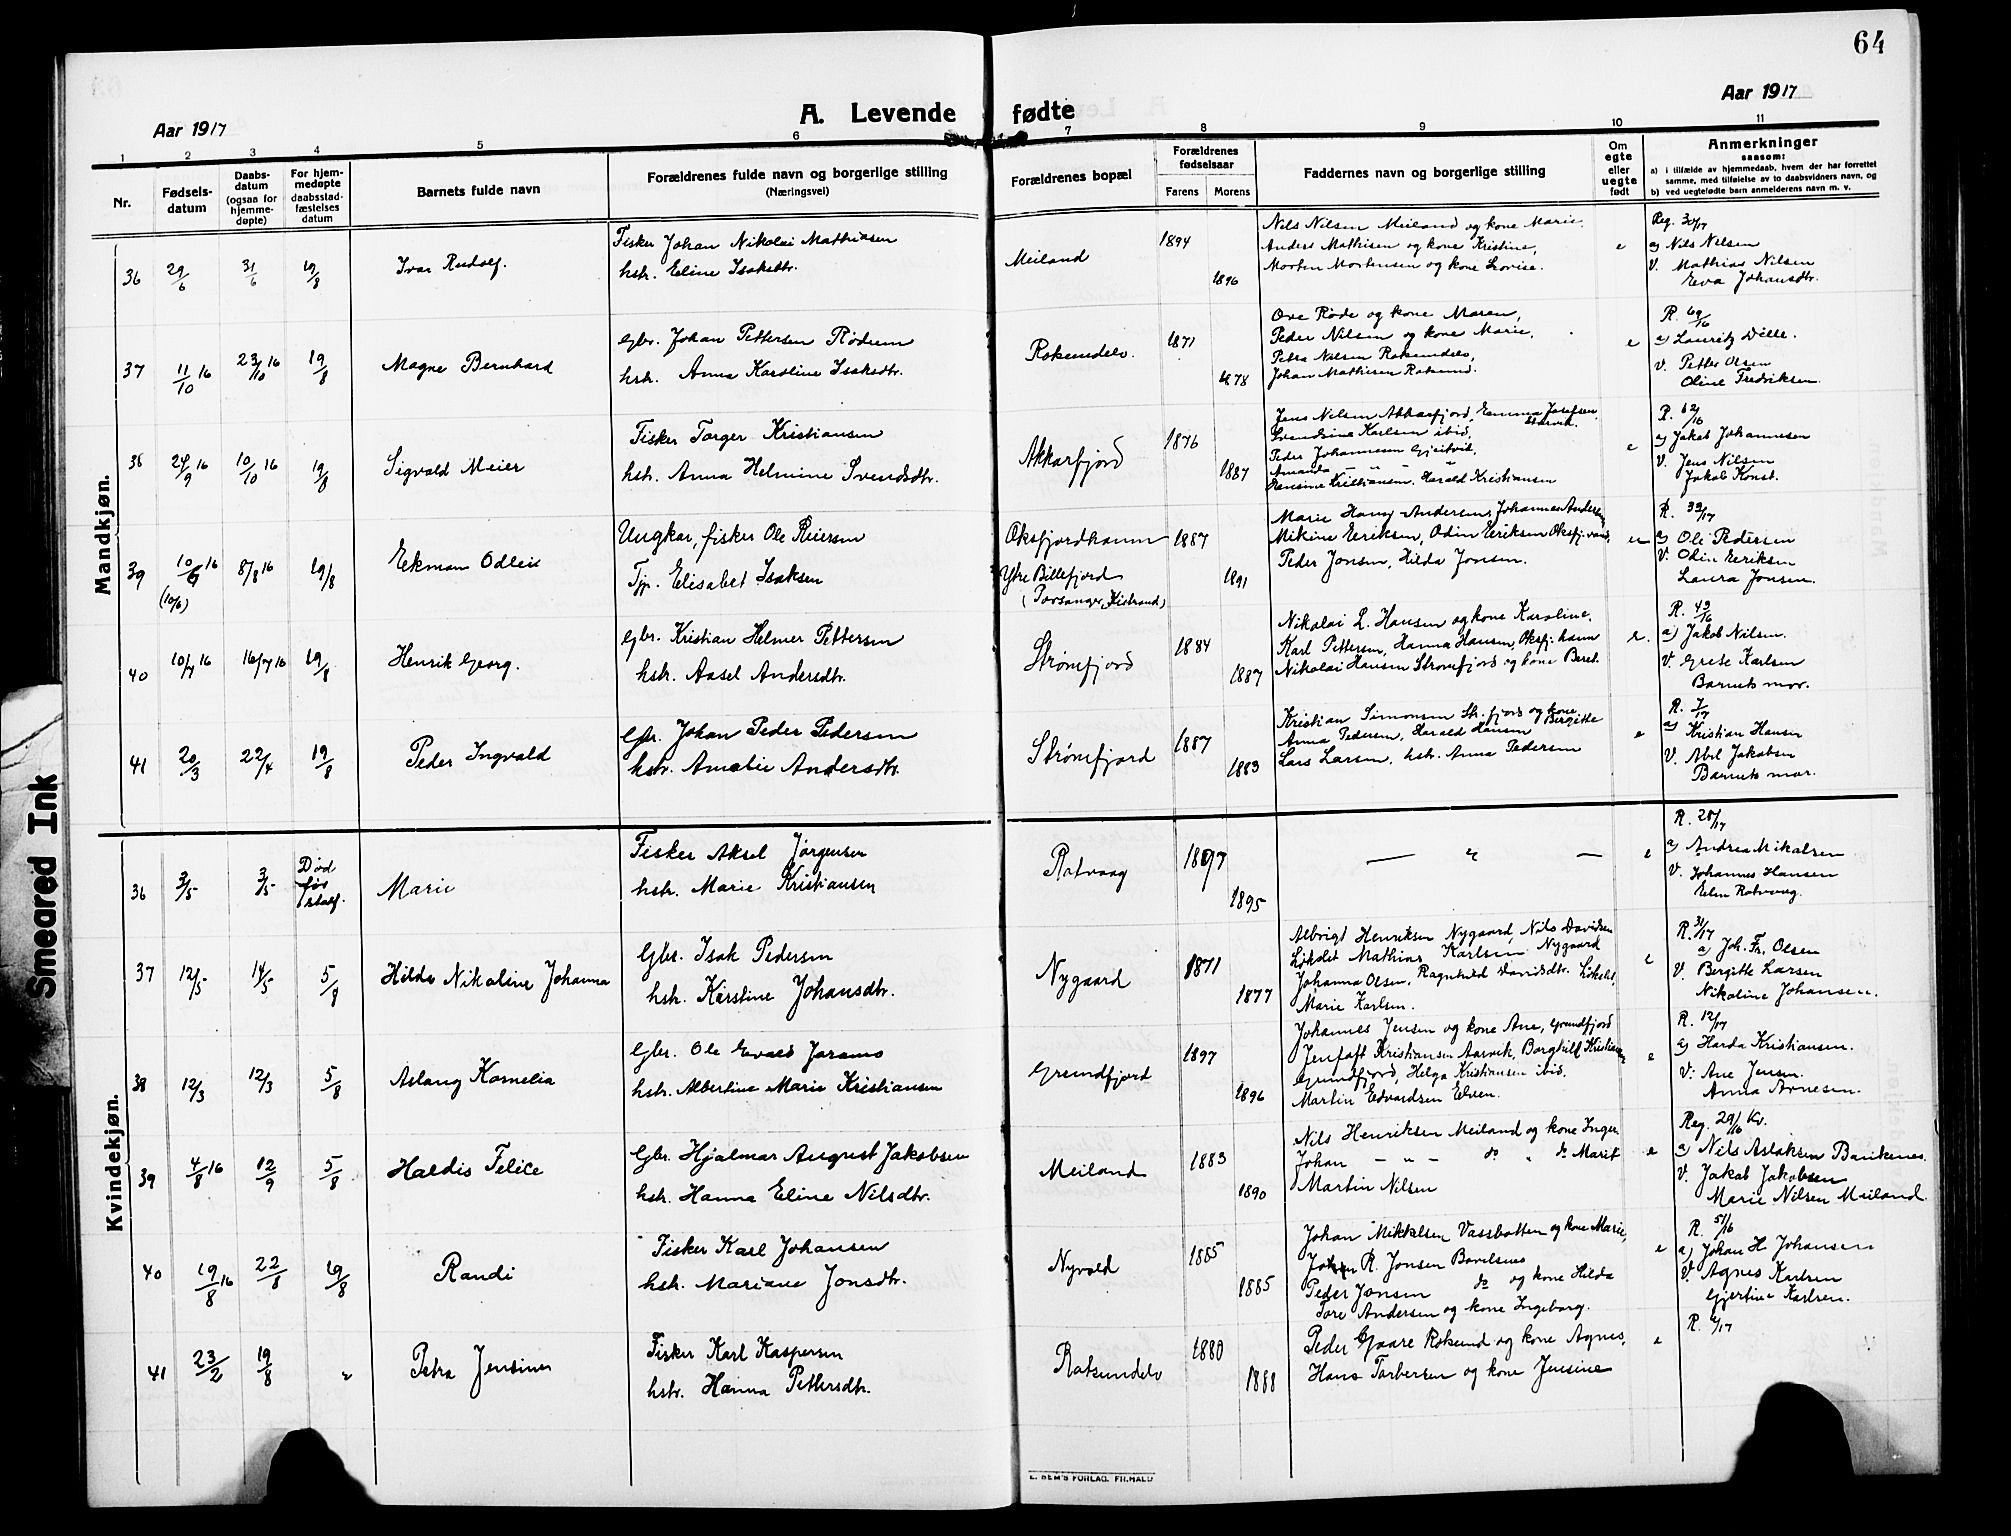 64
Aar 1917
A. Levende fødte
Aar 1917
1 2 3 4 5 6 7 8 9 10 11
Nr.
Fødselsdatum
Daabsdatum (ogsaa for hjemmedøpte)
For hjemmedøpte daabsstadfæstelses datum
Barnets fulde navn
Forældrenes fulde navn og borgerlige stilling
(Næringsvei)
Forældrenes bopæl
Forældrenes fødselsaar
Farens Morens
Faddernes navn og borgerlige stilling
Om egte eller uegte født
Anmerkninger
saasom:
a) i tilfælde av hjemmedaab, hvem der har forrettet samme, med tilføielse av to daabsvidners navn, og
b) ved uegtefødte barn anmelderens navn m. v.
Mandkjøn.
36 29/6 31/6 19/8 Ivar Rudolf.
Fisker Johan Nikolai Mathiasen
hstr. Eline Isaksdtr.
Meiland 1894 1896
Nils Nilsen Meiland og kone Marie.
Anders Mathisen og kone Kristine,
Morten Mortensen og kone Lovise.
e
Reg. 30/17
a) Nils Nilsen
V. Mathias Nilsen
Eva Johansdtr.
37 11/10 16 23/10 16 19/8 Magne Bernhard
Gbr. Johan Pettersen Rødum
hstr. Anna Karoline Isaksdtr.
Roksundelv. 1871 1878
Ove Røde og kone Maren,
Peder Nilsen og kone Marie,
Petra Nilsen Roksundelv,
Johan Mathisen Roksund.
e
R. 69/16
a) Lauritz Dølle.
V. Petter Olsen
Oline Fredriksen.
38 24/9 16 10/10 16 19/8 Sigvald Meier
Fisker Torger Kristiansen
hstr. Anna Helmine Svendsdtr.
Akkarfjord 1876 1887
Jens Nilsen Akkarfjord, Emma Josefsen
Svendsine Karlsen ibid,
Peder Johannesen Gjeitvik,
Amanda - " - "
Hansine Kristiansen, Harald Kristiansen
e
R. 62/16
a) Jakob Johannesen
V. Jens Nilsen
Jakob Konst.
39 10/6 16 8/8 16 19/8 Ekman Odleiv
(10/6)
Ungkar, fisker Ole Reiersen
Tjp. Elisabet Isaksen
Oksfjordhamn 1887
Ytre Billefjord 1891
(Porsanger, Kistrand)
Marie Hansg Andersens, Johannes Andersen
Mikine Eriksen, Odin Eriksen Oksfj.vand,
Peder Jonsen, Hilda Jonsen.
R. 32/17
a) Ole Pedersen
V. Odin Eriksen
Laura Jonsen.
40 10/7 16 16/7 16 19/8 Henrik Georg.
Gbr. Kristian Helmer Pettersen
hstr. Aasel Andersdtr.
Strømfjord 1884 1887
Nikolai L. Hansen og kone Karoline.
Karl Pettersen, Hanna Hansen, Oksfj. hamn
Nikolai Hansen Strømfjord og kone Beret.
e.
R. 43/16
a) Jakob Nilsen.
V. Grete Karlsen
Barnets mor.
41 20/3 22/4 19/8 Peder Ingvald
Gbr. Johan Peder Pedersen
hstr. Amalie Andersdtr.
Strømfjord 1887 1883
Kristian Simonsen Str.fjord og kone Bergitte
Anna Pedersen, Harald Hansen
Lars Larsen, hstr. Anna Pedersen
e
R. 7/17
a) Kristian Hansen
V. Abel Jakobsen
Barnets mor.
Kvindekjøn.
36 3/5 3/5 Død før stadf. Marie
Fisker Aksel Jørgensen
hstr. Marie Kristiansen
Rotvaag 1897 1895
— " —
e
R. 28/17
a) Andrea Mikalsen
V. Johannes Hansen
Elen Rotvaag.
37 12/5 14/5 5/8 Hilda Nikoline Johanna
Gbr. Isak Pedersen
hstr. Kerstine Johansdtr.
Nygaard 1871 1877
Albrigt Henriksen Nygaard, Nils Davidsen
Løkelet Mathias Karlsen Nygaard
Johanna Olsen, Ragnhild Davidsdtr. Løkelet,
Marie Karlsen.
e
R. 31/17
a) Joh. Fr. Olsen
V. Bergitte Larsen
Nikoline Johansen.
38 12/3 12/3 5/8 Aslaug Kornelia
Gbr. Ole Evald Jørams
hstr. Albertine Marie Kristiansen
Grundfjord 1897 1896
Johannes Jensen og kone Ane, Grundfjord
Jentoft Kristiansen Aarvik, Borghild Kristiansen
Grundfjord, Helga Kristiansen ibid,
Martin Edvardsen Elven.
e
R. 12/17
a) Harda Kristiansen.
V. Ane Jensen.
Anna Arnesen.
39 4/8 16 12/9 5/8 Haldis Felice
Gbr. Hjalmar August Jakobsen
hstr. Hanna Eline Nilsdtr.
Meiland 1883 1890
Nils Henriksen Meiland og kone Inger
Johan - " - do " do Marit
Martin Nilsen
e
Reg. 29/16 Kv.
a) Nils Aslaksen Bankenes.
V. Jakob Jakobsen
Marie Nilsen Meiland.
40 19/8 16 22/8 19/8 Randi
Fisker Karl Johansen
hstr. Mariane Jonsdtr.
Nyvold 1885 1885
Johan Mikkelsen Vassbotten og kone Marie,
Johan R. Jonsen Bovelsnes
Peder Jonsen do og kone Hilda
Tore Andersen og kone Ingeborg.
e
R. 51/16
a) Johan H Johansen
V. Agnes Karlsen
Gjertine Karlsen.
41 23/2 19/8 " Petra Jensine
Fisker Karl Kaspersen
hstr. Hanna Pettersdtr.
Roksundelv 1880 1888
Peder Gaare Roksund og kone Agnes,
Hans Torbersen og kone Jensine
e
R. 6/17
E. SEM'S FORLAG. FR.HALD
Smeared Ink